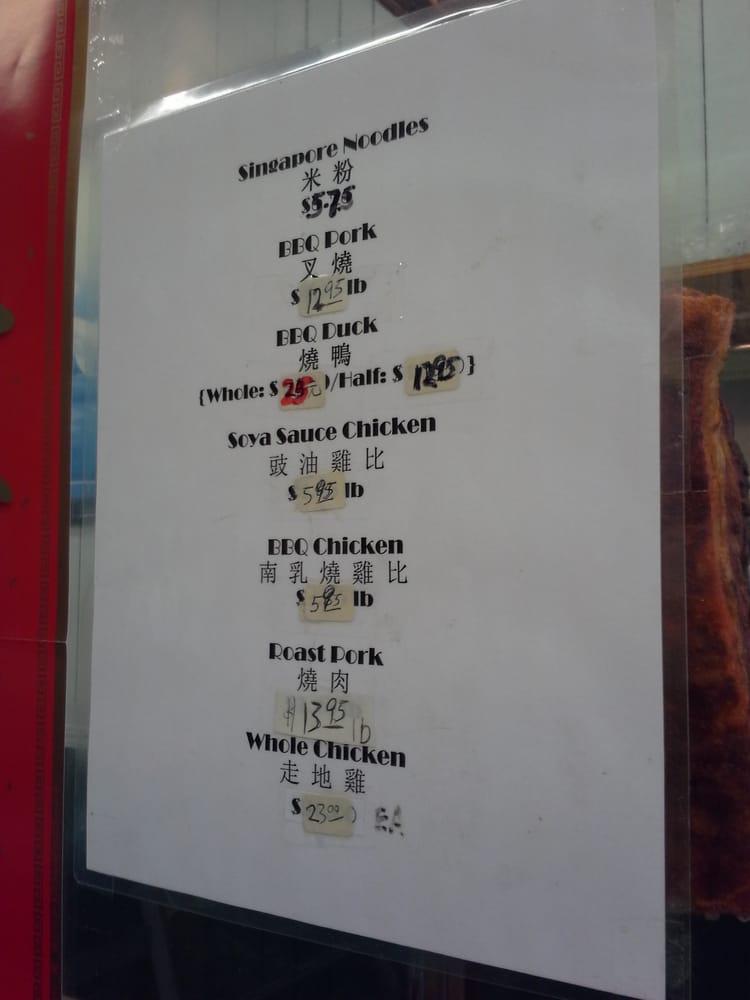 Singapore Noodles
米 粉
$5.75
BBQ Pork
叉 燒
$ 12.95 lb
BBQ Duck
燒 鴨
{Whole: $ 25元)/Half: $ 12.95)}
Soya Sauce Chicken
豉 油 雞 比
$ 5.95 lb
BBQ Chicken
南 乳 燒 雞 比
$ 5.95 lb
Roast Pork
燒 肉
$ 13.95 lb
Whole Chicken
走 地 雞
$ 23.00) EA